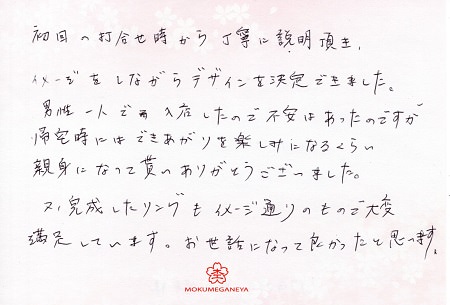 初回の打合せ時から丁寧に説明頂き、
イメージをしながらデザインを決定できました。
男性一人で入店したので不安はあったのですが
帰宅時にはできあがりを楽しみになるくらい
親身になって貰いありがとうございました。
又、完成したリングもイメージ通りのもので大変
満足しています。お世話になって良かったと思います。
MOKUMEGANEYA